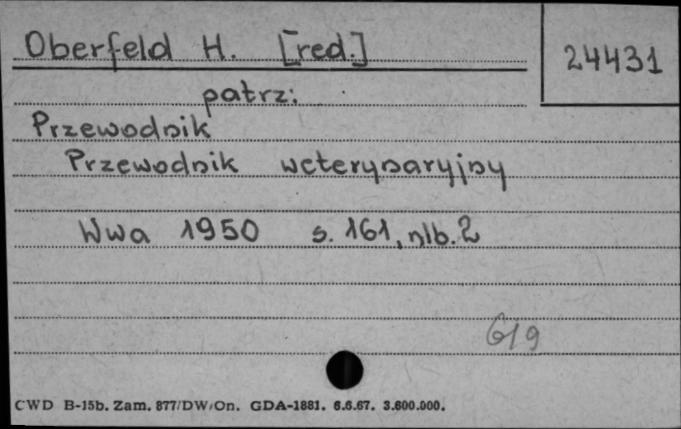 Oberfeld H. [red.]
24431
patrz:
Przewodnik
Przewodnik weterynaryjny
Wwa 1950 s. 161, nlb. 2
G19
CWD B-15b. Zam. 877/DW/On. GDA-1881. 6.6.67. 3.600.000.